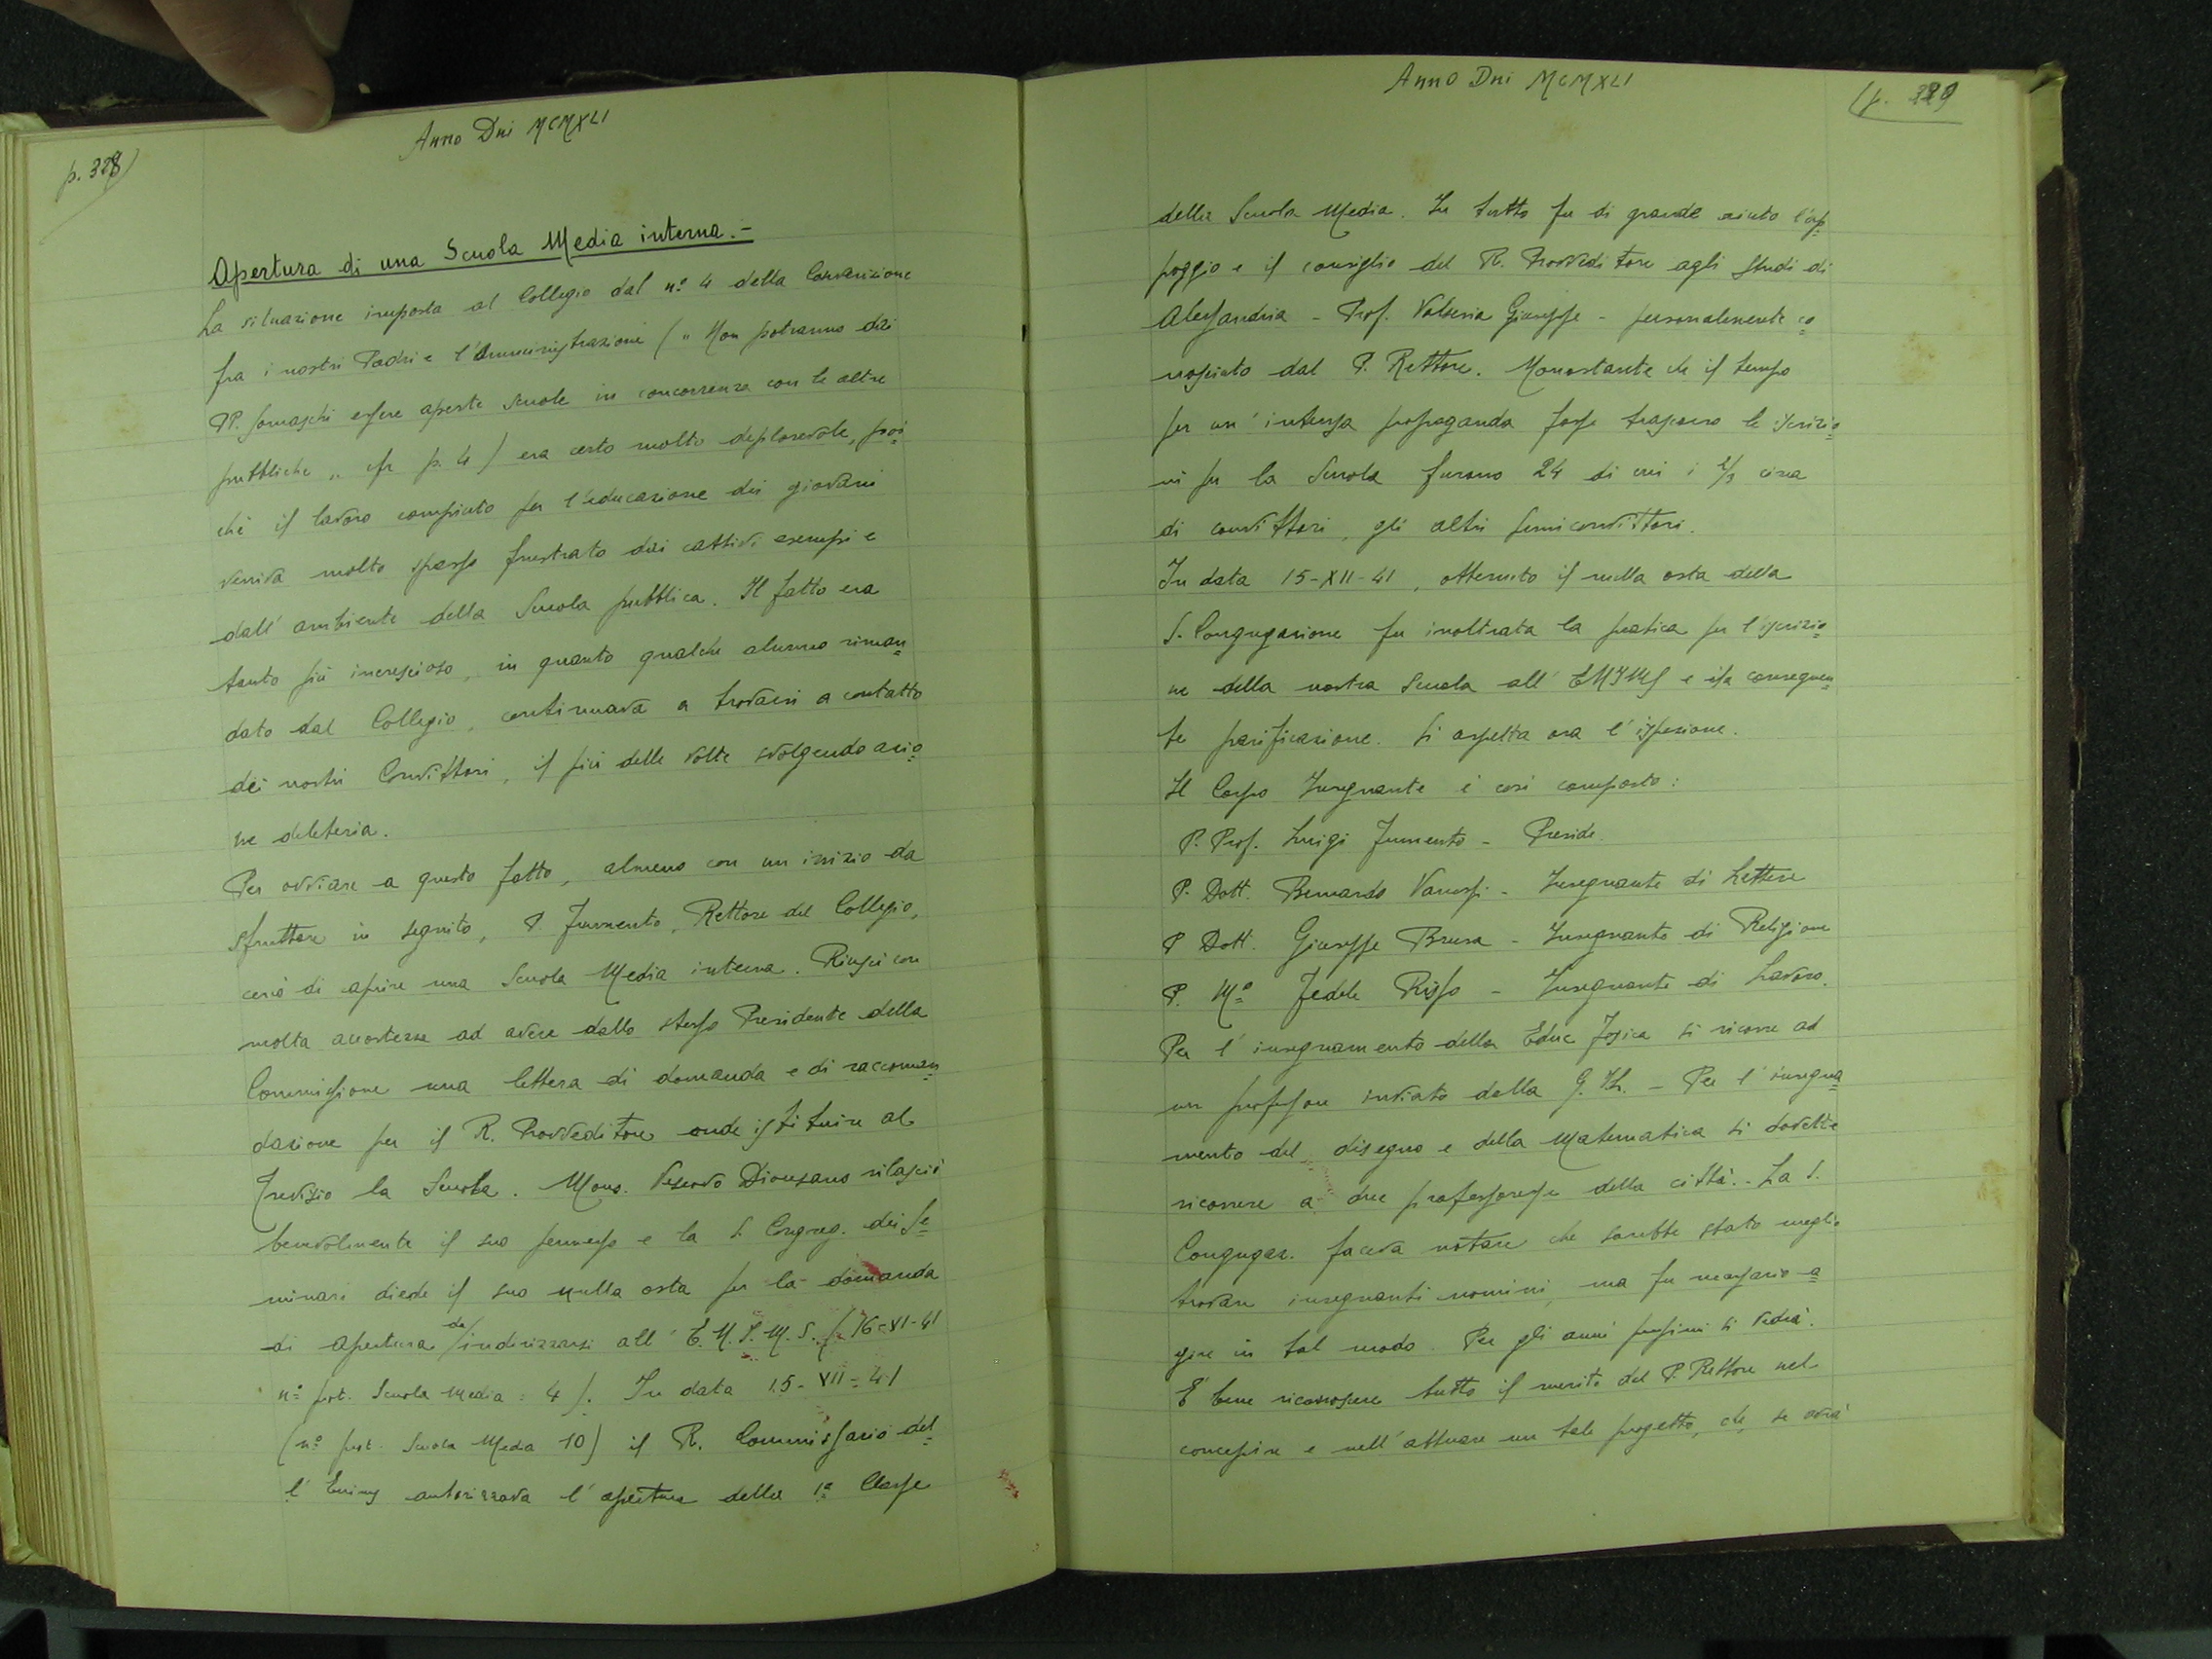 Anno Dni MCMXLI
p. 328)
Apertura di una Scuola Media interna.-
La situazione imposta al Collegio dal nº 4 della Convenzione
fra i nostri Padri e l'Amministrazione (" Non potranno dai
PP. Somaschi essere aperte scuole in concorrenza con le altre
pubbliche " cfr p. 4) era certo molto deplorevole, poi=
chè il lavoro compiuto per l'educazione dei giovani
veniva molto spesso frustrato dai cattivi esempi e
dall'ambiente della Scuola pubblica. Il fatto era
tanto più increscioso, in quanto qualche alunno riman=
dato dal Collegio, continuava a trovarsi a contatto
dei nostri Convittori, il più delle volte svolgendo azio=
ne deleteria.
Per ovviare a questo fatto, almeno con un inizio da
sfruttare in seguito, P. Frumento, Rettore del Collegio,
cercò di aprire una Scuola Media interna. Riuscì con
molta accortezza ad avere dallo stesso Presidente della
Commissione una lettera di domanda e di raccoman=
dazione per il R. Provveditore onde istituire al
Trevisio la Scuola. Mons. Vescovo Diocesano rilasciò
benevolmente il suo permesso e la S. Congreg. dei Se=
minari diede il suo nulla osta per la domanda
di apertura da indirizzarsi all' E.N.I.M.S. (16-XI-41
nº prt. Scuola Media: 4). In data 15-XII-41
(nº prt. Scuola Media 10) il R. Commissario del=
l'Enims autorizzava l'apertura della 1ª Classe
Anno Dni MCMXLI
(p. 329
della Scuola Media. In tutto fu di grande aiuto l'ap=
poggio e il consiglio del R. Provveditore agli Studi di
Alessandria - Prof. Giuseppe - personalmente co=
nosciuto dal P. Rettore. Nonostante che il tempo
per un'intensa propaganda fosse trascorso le iscrizio=
ni per la Scuola furono 24 di cui i 2/3 circa
di convittori, gli altri semiconvittori.
In data 15-XII-41, ottenuto il nulla osta della
S. Congregazione fu inoltrata la pratica per l'iscrizio=
ne della nostra Scuola all' ENIMS e la conseguen=
te parificazione. Si aspetta ora l'ispezione.
Il Corpo Insegnante è così composto:
P. Prof. Luigi Frumento - Preside
P. Dott. Bernardo Vanossi - Insegnante di Lettere
P. Dott. Giuseppe Brusa - Insegnante di Religione
P. Mº Fedele Risso - Insegnante di Lavoro.
Per l'insegnamento della Educ Fisica si ricorse ad
un professore inviato dalla G.I.L. - Per l'insegna=
mento del disegno e della Matematica si dovette
ricorrere a due professoresse della città. - La S.
Congregaz. faceva notare che sarebbe stato meglio
trovare insegnanti uomini, ma fu necessario a=
gire in tal modo. Per gli anni prossimi si vedrà.
E' bene riconoscere tutto il merito del P. Rettore nel
concepire e nell'attuare un tale progetto, che, se avrà